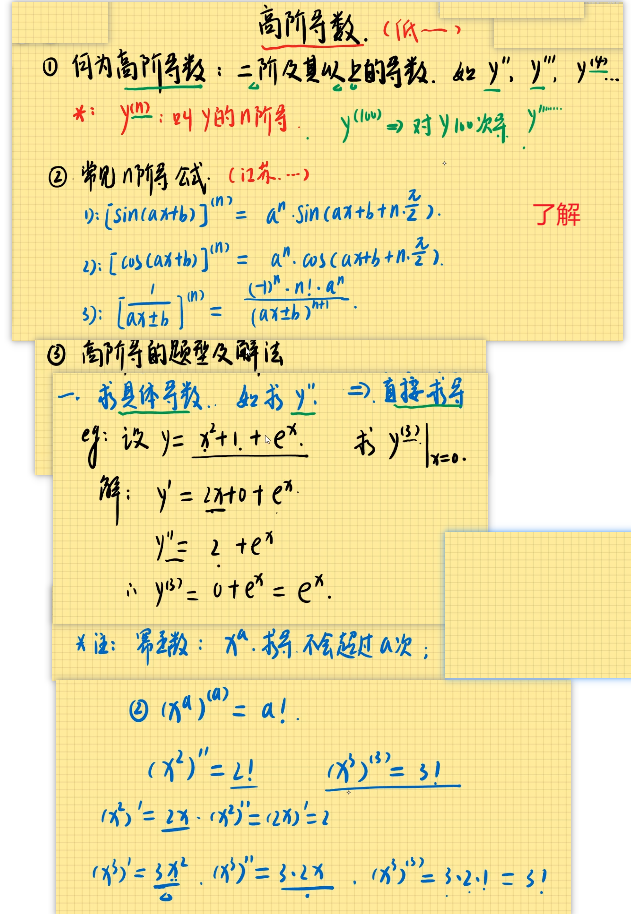 高阶导数.（低一）
① 何为高阶导数：二阶及其以上的导数. 如 y'', y''', y⁽⁴⁾…
*: y⁽ⁿ⁾：叫 y 的 n 阶导. y⁽¹⁰⁰⁾ => 对 y 100次导 y''''''……
② 常见 n 阶导公式.（江苏…）
1): [sin(ax+b)]⁽ⁿ⁾ = aⁿ·sin(ax+b+n·π/2). 了解
2): [cos(ax+b)]⁽ⁿ⁾ = aⁿ·cos(ax+b+n·π/2).
3): [1/(ax±b)]⁽ⁿ⁾ = (-1)ⁿ·n!·aⁿ/(ax±b)ⁿ⁺¹.
③ 高阶导的题型及解法
一. 求具体导数. 如求 y'' => 直接求导
eg: 设 y = x²+1+eˣ. 求 y⁽³⁾|x=0.
解: y' = 2x+0+eˣ.
y'' = 2+eˣ
∴ y⁽³⁾ = 0+eˣ = eˣ.
*注: 幂函数: xᵃ·求导不会超过a次;
② (xᵃ)⁽ᵃ⁾ = a!.
(x²)'' = 2! (x³)⁽³⁾ = 3!
(x²)' = 2x. (x²)'' = (2x)' = 2
(x³)' = 3x². (x³)'' = 3·2x. (x³)⁽³⁾ = 3·2·1 = 3!